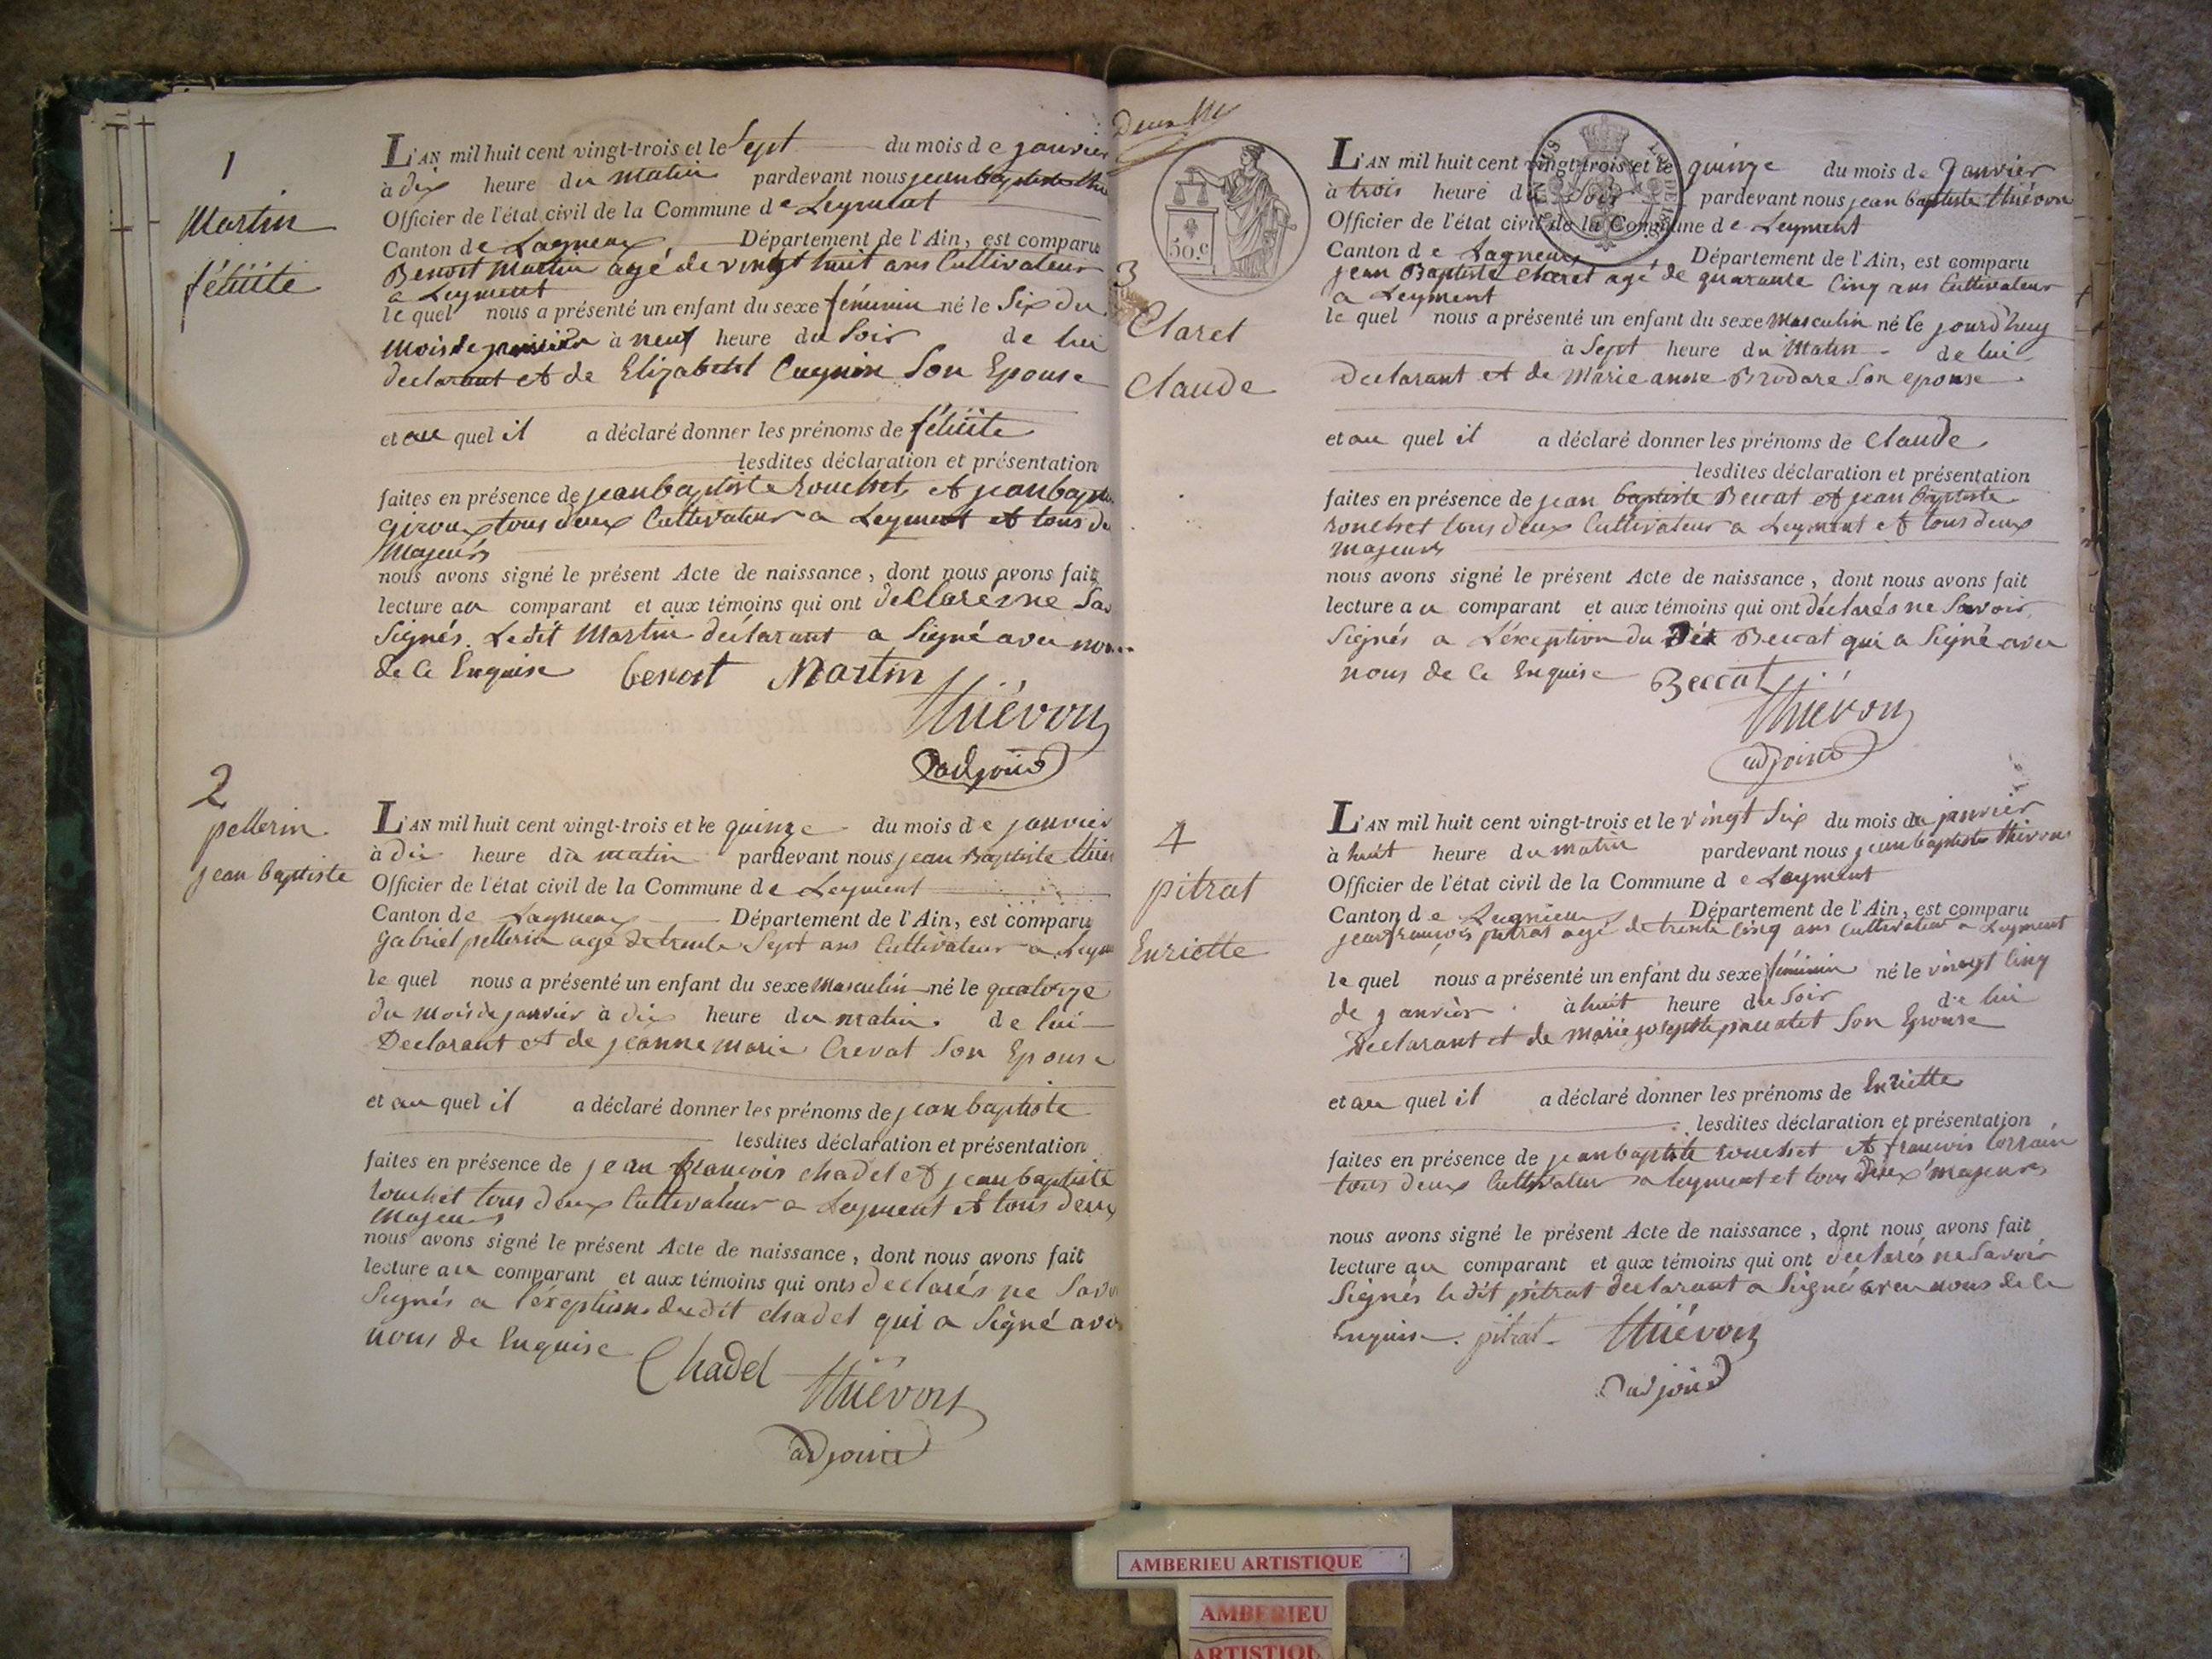 1
Martin
féliiite
L'AN mil huit cent vingt-trois et le Sept du mois de janvier
à dix heure du matin pardevant nous jean baptiste
Officier de l'état civil de la Commune de Leyment
Canton de Lagneux Département de l'Ain, est comparu
Benoit Martin agé de vingt huit ans Cultivateur
a Leyment
le quel nous a présenté un enfant du sexe féminin né le Six du
mois de janvier à neuf heure du Soir de lui
declarant et de Elizabeth Cagnin Son Epouse
et au quel il a déclaré donner les prénoms de féliiite
lesdites déclaration et présentation
faites en présence de jean baptiste rouchet et jean
giroux tous deux Cultivateur a Leyment et tous
Majeurs
nous avons signé le présent Acte de naissance, dont nous avons fait
lecture au comparant et aux témoins qui ont declarés ne
Signés. Ledit Martin déclarant a Signé avec
de le Enquise benoit Martin
thiévon
adjoint
2
pellerin
jean baptiste
L'AN mil huit cent vingt-trois et le quinze du mois de janvier
à dix heure du matin pardevant nous jean Baptiste
Officier de l'état civil de la Commune de Leyment
Canton de Lagneux Département de l'Ain, est comparu
gabriel pellerin agé de trente Sept ans Cultivateur a
le quel nous a présenté un enfant du sexe Masculin né le quatorze
du mois de janvier à dix heure du matin. de lui
Declarant et de jeanne marie Crevat Son Epouse
et au quel il a déclaré donner les prénoms de jean baptiste
lesdites déclaration et présentation
faites en présence de jean françois chadel et jean baptiste
rouchet tous deux Cultivateur a Leyment et tous deux
majeurs
nous avons signé le présent Acte de naissance, dont nous avons fait
lecture au comparant et aux témoins qui onts declarés ne
Signés a l'éxeptions dudit chadel qui a Signé
nous de Enquise Chadel
thiévon
adjoint
50.c
3
Claret
Claude
L'AN mil huit cent vingt-trois et le quinze du mois de Janvier
à trois heure du Soir pardevant nous jean baptiste thiévon
Officier de l'état civil de la Commune de Leyment
Canton de Lagneux Département de l'Ain, est comparu
jean Baptiste Claret agé de quarante Cinq ans Cultivateur
a Leyment
le quel nous a présenté un enfant du sexe Masculin né le jourd'huy
à Sept heure du Matin de lui
Declarant et de Marie anne Brodare Son epouse
et au quel il a déclaré donner les prénoms de Claude
lesdites déclaration et présentation
faites en présence de jean baptiste Beccat et jean baptiste
rouchet tous deux Cultivateur a Leyment et tous deux
majeurs
nous avons signé le présent Acte de naissance, dont nous avons fait
lecture au comparant et aux témoins qui ont déclarés ne Savoir
Signés a L'éxception du Beccat qui a Signé avec
nous de le Enquise Beccat
thiévon
adjoint
4
pitrat
Enriette
L'AN mil huit cent vingt-trois et le vingt Six du mois de janvier
à huit heure du matin pardevant nous jean baptiste thievon
Officier de l'état civil de la Commune de Leyment
Canton de Département de l'Ain, est comparu
jean françois pitrat agé de trente Cinq ans Cultivateur a Leyment
le quel nous a présenté un enfant du sexe féminin né le vingt Cinq
de janvièr à huit heure du Soir de lui
Declarant et de Son Epouse
et au quel il a déclaré donner les prénoms de Enriette
lesdites déclaration et présentation
faites en présence de jean baptiste rouchet et françois Corrain
tous deux Cultivateur a leyment et tous deux majeurs
nous avons signé le présent Acte de naissance, dont nous avons fait
lecture au comparant et aux témoins qui ont declarés ne Savoir
Signés ledit pitrat declarant a Signé avec nous de le
Enquise. pitrat thiévon
adjoint
AMBERIEU ARTISTIQUE
AMBERIEU
ARTISTIQU